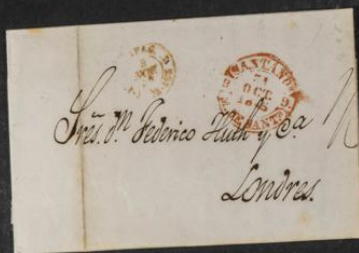 SANTANDE
OCT.
Sres. Dn. Federico Huth y Ca
Londres.